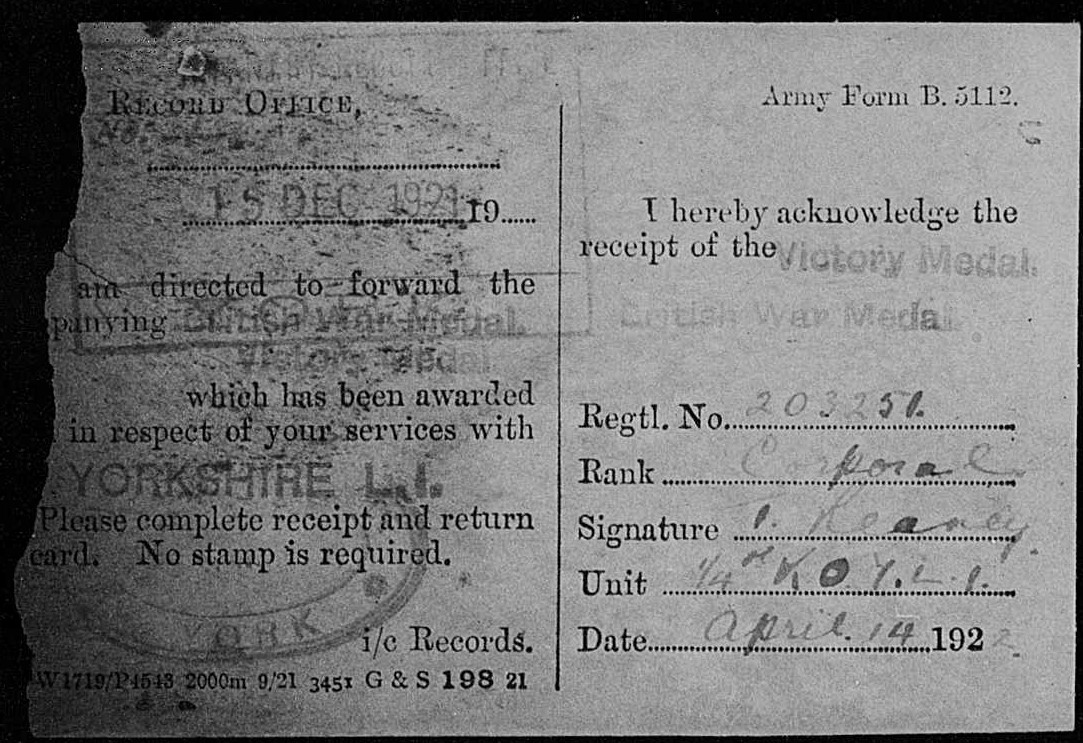 RECORD OFFICE,
15 DEC 1921 19......
am directed to forward the
panying British War Medal.
Victory Medal
which has been awarded
in respect of your services with
YORKSHIRE L.I.
Please complete receipt and return
card. No stamp is required.
YORK
i/c Records.
W1719/P4543 2000m 9/21 3451 G & S 198 21
Army Form B. 5112.
I hereby acknowledge the
receipt of the Victory Medal.
British War Medal.
Regtl. No. 203251.
Rank Corporal
Signature
Unit 1/4th K.O.Y.L.I.
Date April. 14 1922.